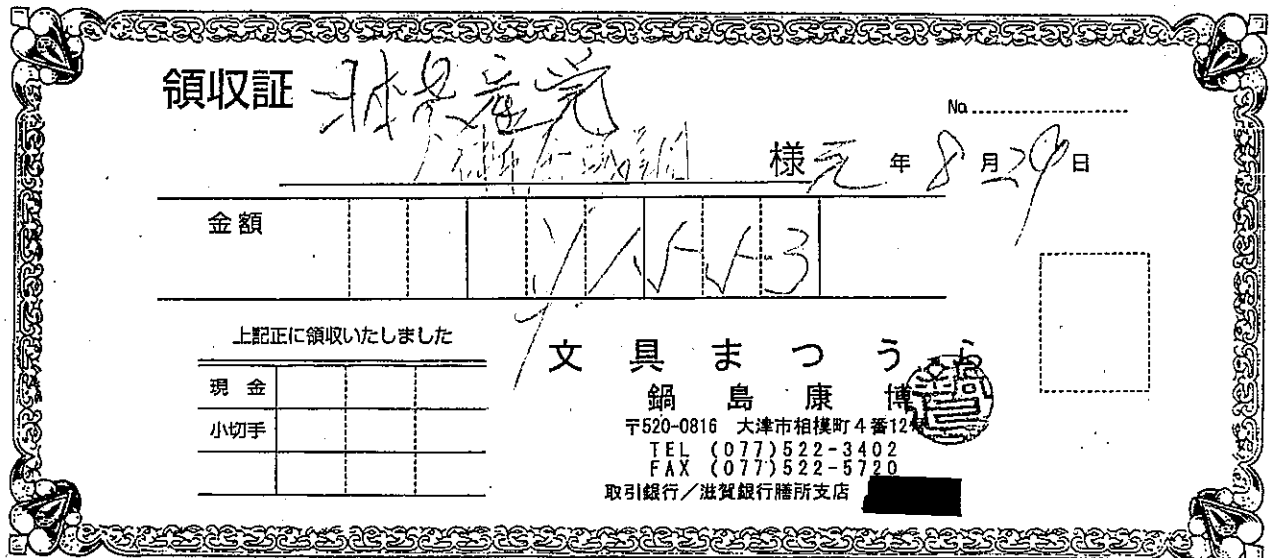 領収証 日本共産党
大津市会議員団 様 元年8月29日
No.
金額 ¥15553
上記正に領収いたしました
現金
小切手
文具まつうら
鍋島康博
〒520-0816 大津市相模町4番12
TEL (077)522-3402
FAX (077)522-5720
取引銀行/滋賀銀行膳所支店